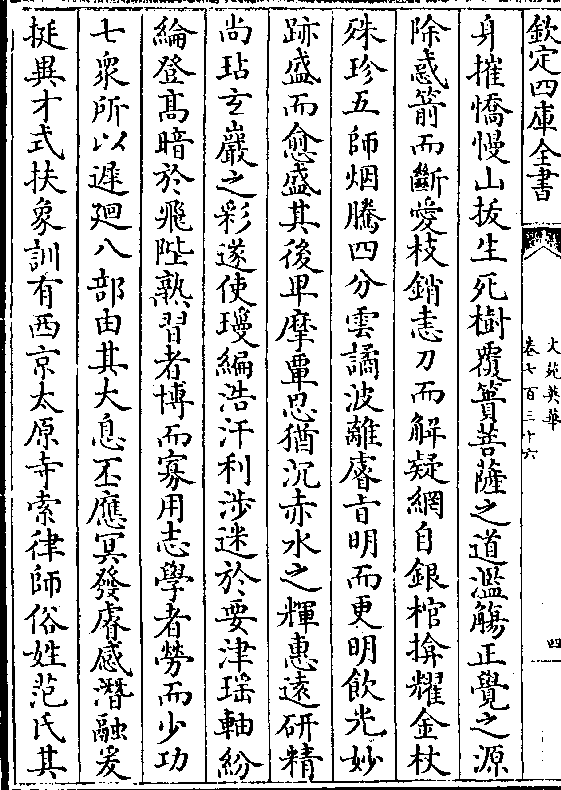 欽定四庫全書
文苑英華
卷七百三十六
四
身摧憍慢山拔生死樹覆簣菩薩之道濫觴正覺之源
除惑箭而斷愛枝銷恚刀而解疑網自銀棺揜耀金杖
殊珍五師烟騰四分雲譎波離睿旨明而更明飲光妙
跡盛而愈盛其後卑摩覃思猶沉赤水之輝惠遠研精
尚玷玄巖之彩遂使瓊編浩汗利涉迷於要津瑶軸紛
綸登髙暗於飛陛熟習者博而寡用志學者勞而少功
七衆所以遲廻八部由其大息丕應冥發睿感潛融爰
挺異才式扶象訓有西京太原寺索律師俗姓范氏其